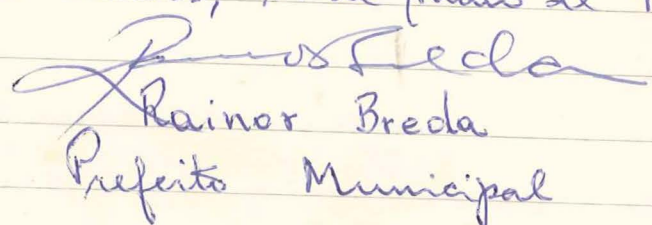 de maio de
Rainor Breda
Rainor Breda
Prefeito Municipal